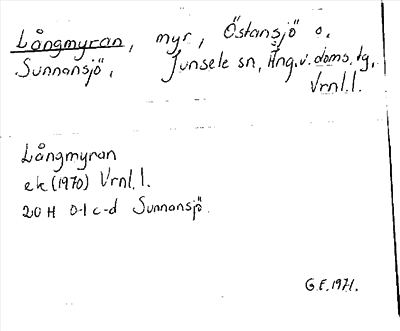 Långmyran, myr, Östansjö o.
Sunnansjö, Junsele sn, Ång. v. doms. tg,
Vrnl. l.
Långmyran
ek (1970) Vrnl. l.
20 H 0-1 c-d Sunnansjö.
G.E. 1971.